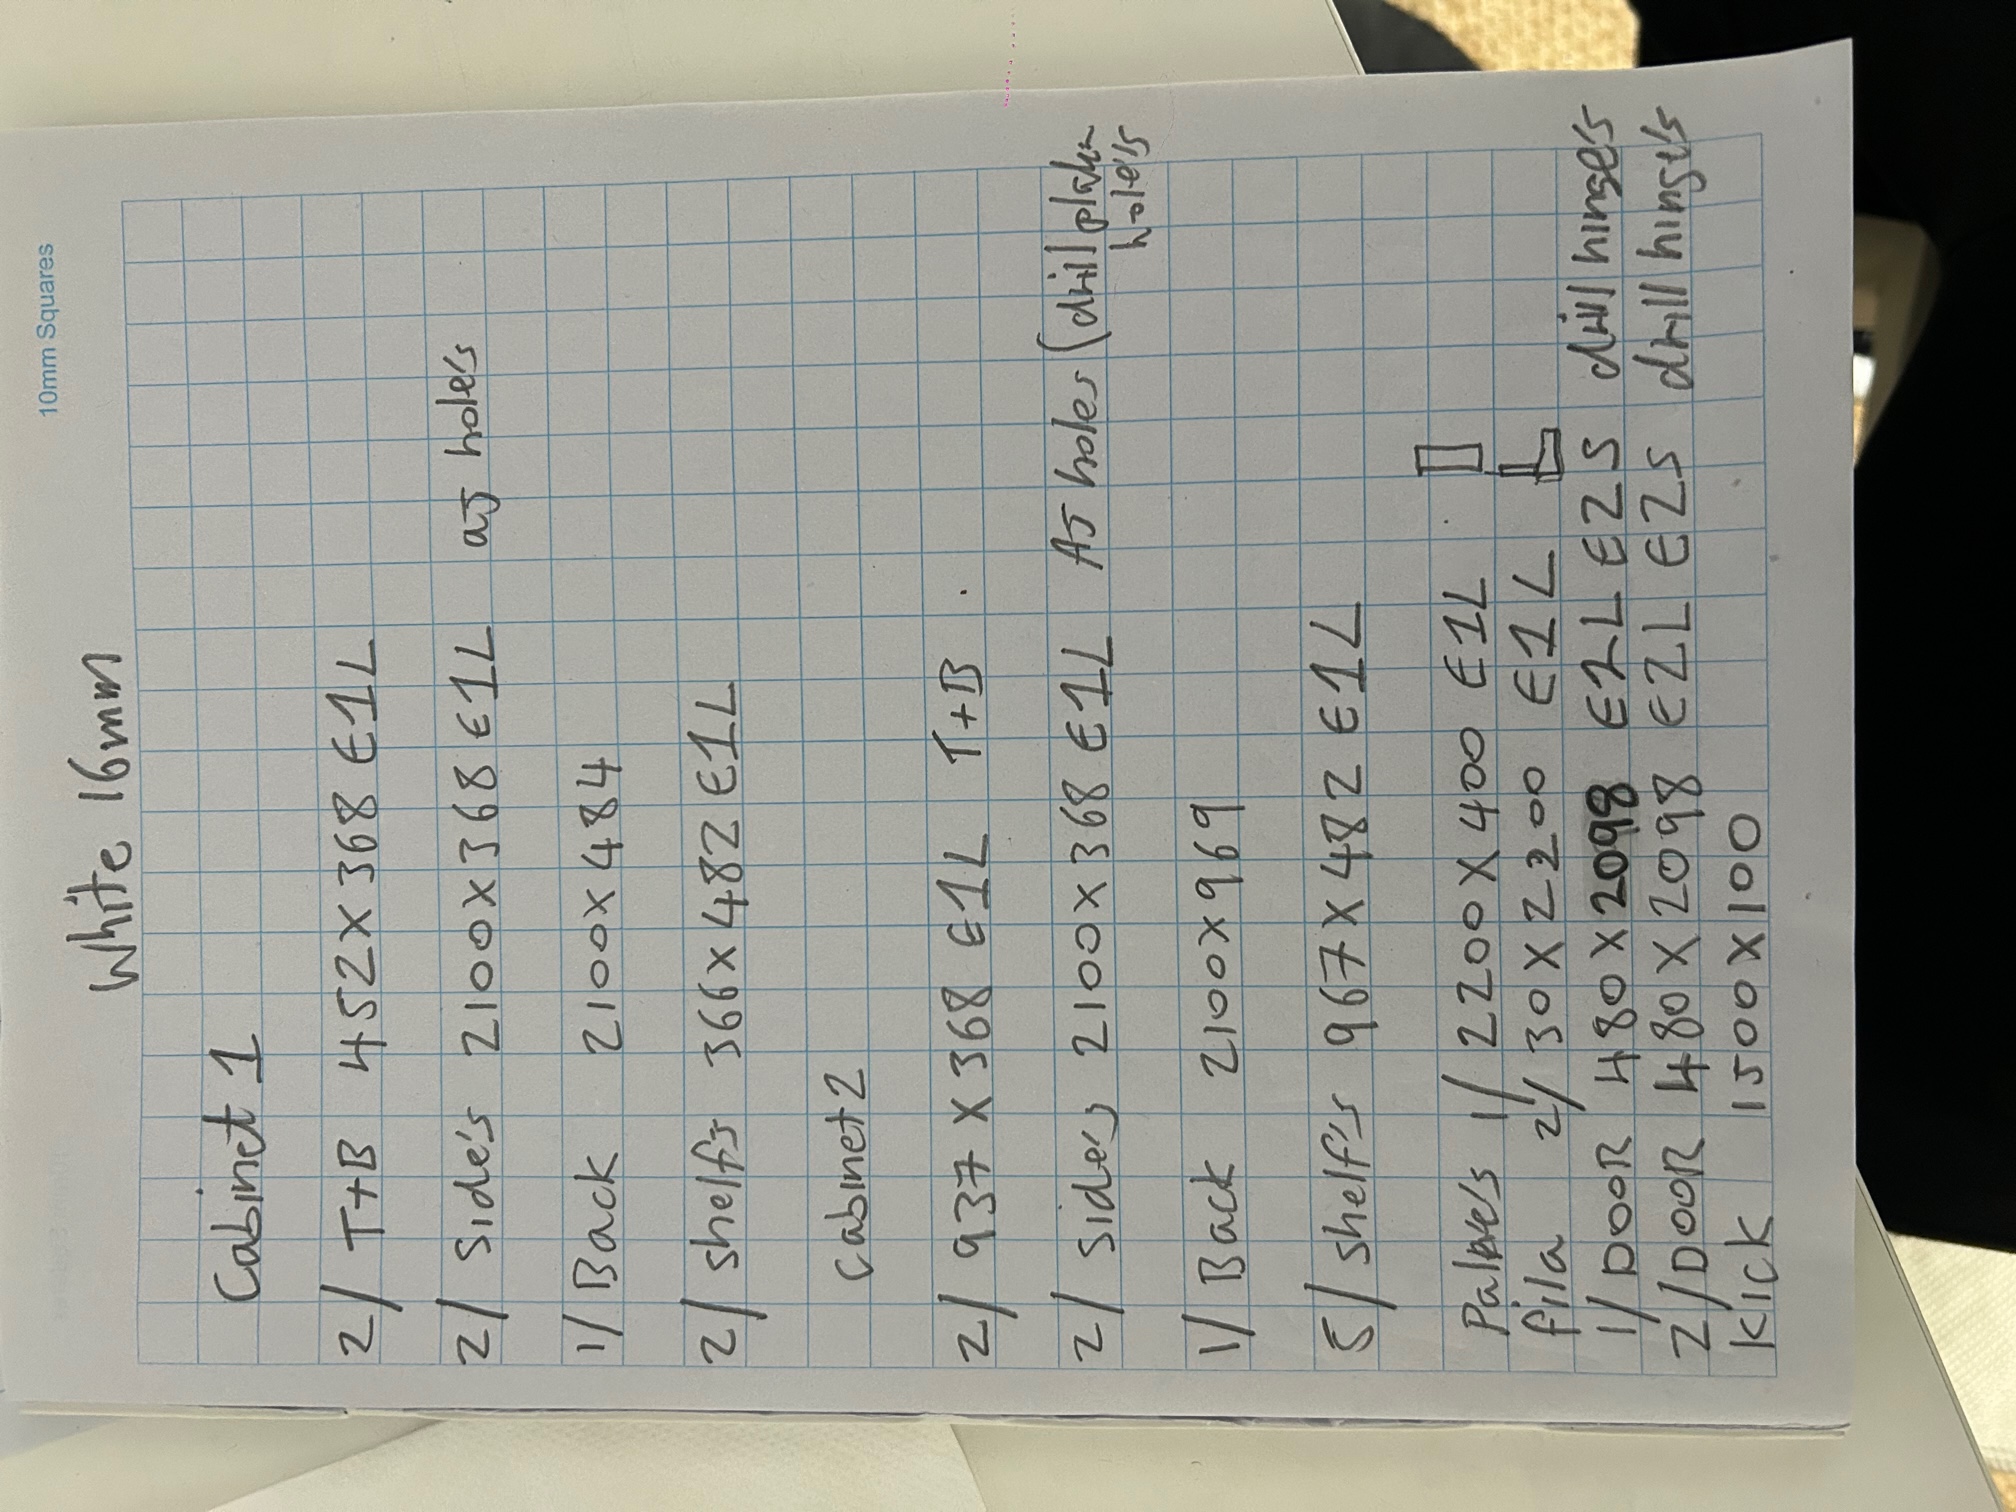 10mm Squares
White 16mm
Cabinet 1
2/ T+B 452 x 368 E1L
2/ Side's 2100 x 368 E1L aJ holes
1/ Back 2100 x 484
2/ shelfs 366 x 482 E1L
Cabinet 2
2/ 937 x 368 E1L T+B
2/ Sides 2100 x 368 E1L AJ holes (drill
hole's
1/ Back 2100 x 969
5/ shelf's 967 x 482 E1L
1/ 2200 x 400 E1L
fila 2/ 30 x 2200 E1L
1/ DOOR 480 x 2098 E2L E2S drill hinge's
2/ DOOR 480 x 2098 E2L E2S drill hinge's
KICK 1500 x 100